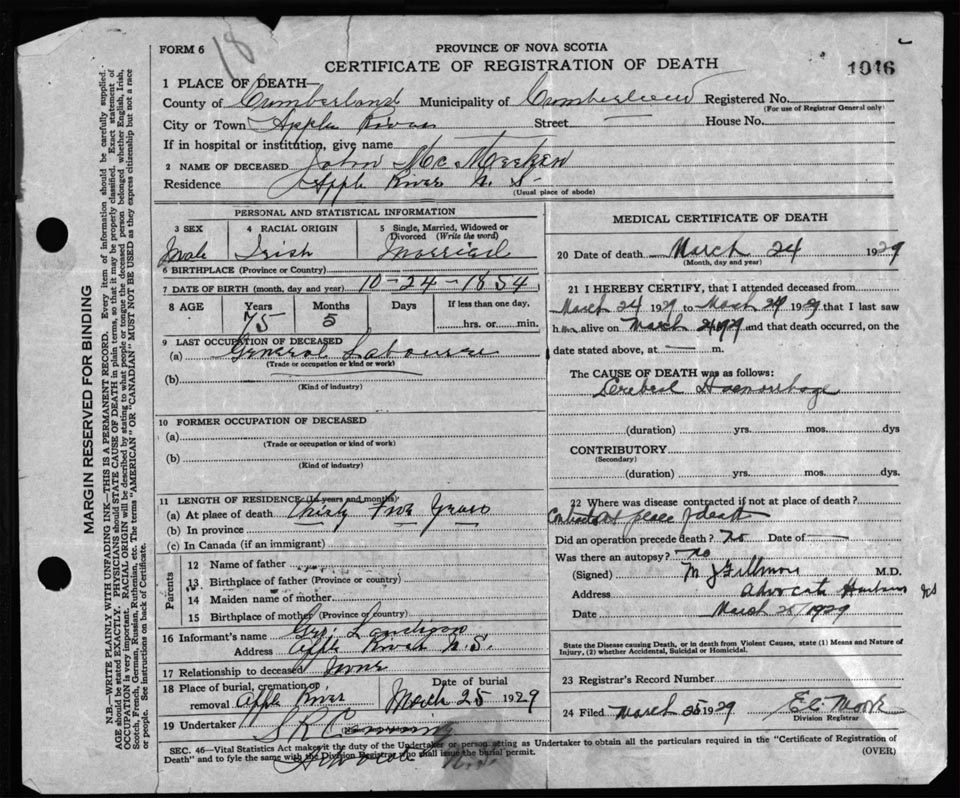 18
FORM 6
PROVINCE OF NOVA SCOTIA
CERTIFICATE OF REGISTRATION OF DEATH
1046
1 PLACE OF DEATH
County of Cumberland Municipality of Cumberland Registered No.
(For use of Registrar General only)
City or Town Apple River Street House No.
If in hospital or institution, give name
2 NAME OF DECEASED John McMeeken
Residence Apple River N. S.
(Usual place of abode)
MARGIN RESERVED FOR BINDING
N.B.—WRITE PLAINLY WITH UNFADING INK—THIS IS A PERMANENT RECORD. Every item of information should be carefully supplied.
AGE should be stated EXACTLY. PHYSICIANS should STATE CAUSE OF DEATH in plain terms, so that it may be properly classified. Exact statement of
OCCUPATION is very important. RACIAL ORIGIN will be described by stating to what people or tongue the deceased person belonged whether English, Irish,
Scotch, French, German, Russian, Ruthenian, etc. The terms "AMERICAN" OR "CANADIAN" MUST NOT BE USED as they express citizenship but not a race
or people. See instructions on back of Certificate.
PERSONAL AND STATISTICAL INFORMATION
3 SEX
Male
4 RACIAL ORIGIN
Irish
5 Single, Married, Widowed or
Divorced (Write the word)
Married
6 BIRTHPLACE (Province or Country)
7 DATE OF BIRTH (month, day and year) 10-24-1854
8 AGE Years Months Days If less than one day,
75 5 hrs. or min.
9 LAST OCCUPATION OF DECEASED
(a) General Labourer
(Trade or occupation or kind or work)
(b)
(Kind of industry)
10 FORMER OCCUPATION OF DECEASED
(a)
(Trade or occupation or kind of work)
(b)
(Kind of industry)
11 LENGTH OF RESIDENCE (In years and months)
(a) At place of death Thirty Five Years
(b) In province
(c) In Canada (if an immigrant)
Parents
12 Name of father
13 Birthplace of father (Province or country)
14 Maiden name of mother
15 Birthplace of mother (Province or Country)
16 Informant's name
Address Apple River N.S.
17 Relationship to deceased None
18 Place of burial, cremation or
removal Apple River
Date of burial
March 25 1929
19 Undertaker
MEDICAL CERTIFICATE OF DEATH
20 Date of death March 24 1929
(Month, day and year)
21 I HEREBY CERTIFY, that I attended deceased from
March 24 1929 to March 24 1929 that I last saw
him alive on March 24 1929 and that death occurred, on the
date stated above, at m.
The CAUSE OF DEATH was as follows:
Cerebral Haemorrhage
(duration) yrs. mos. dys
CONTRIBUTORY
(Secondary)
(duration) yrs. mos. dys.
22 Where was disease contracted if not at place of death?
Contracted at place of death
Did an operation precede death? No Date of
Was there an autopsy? No
(Signed) M J Fillmore M.D.
Address Advocate Harbour N.S
Date March 25 1929
State the Disease causing Death, or in death from Violent Causes, state (1) Means and Nature of
Injury, (2) whether Accidental, Suicidal or Homicidal.
23 Registrar's Record Number
24 Filed March 25 1929 E. C. Moore
Division Registrar
SEC. 46—Vital Statistics Act makes it the duty of the Undertaker or person acting as Undertaker to obtain all the particulars required in the "Certificate of Registration of
Death" and to fyle the same with the Division Registrar who shall issue the burial permit. (OVER)
Advocate N.S.